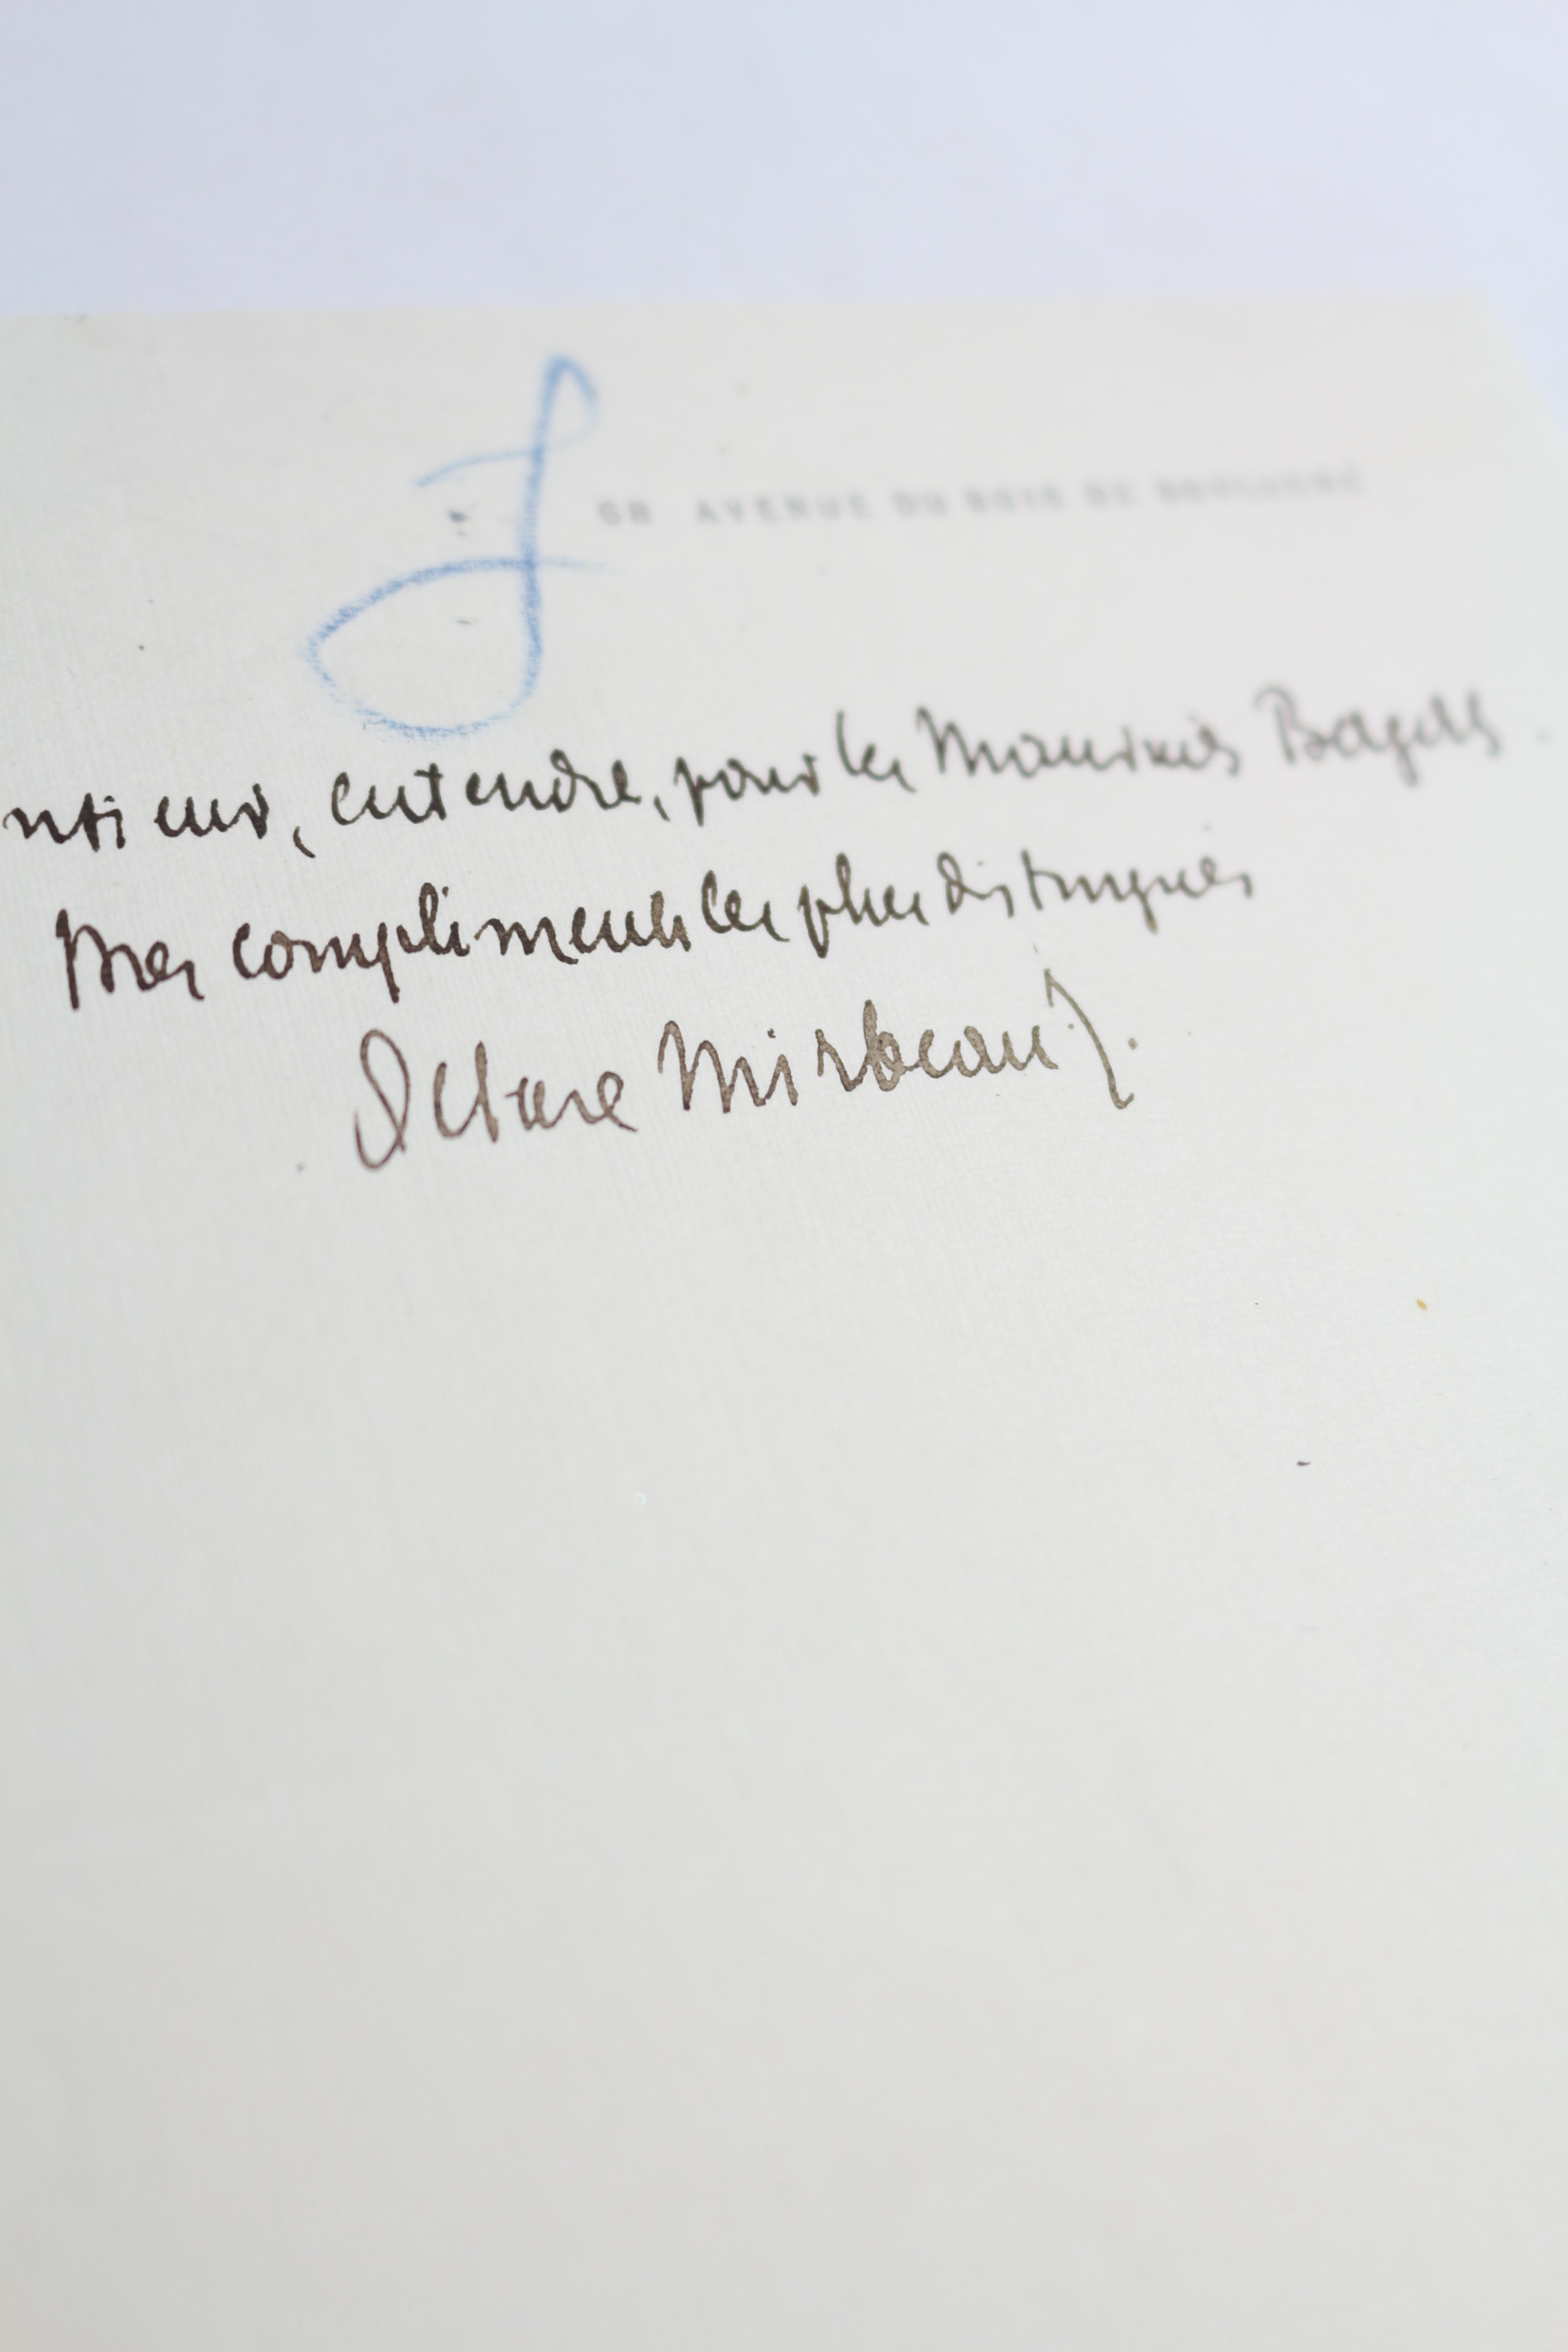 68 AVENUE DU BOIS DE BOULOGNE
entendre, pour les Mauvais
Mes compliments les plus distingués
Octave Mirbeau